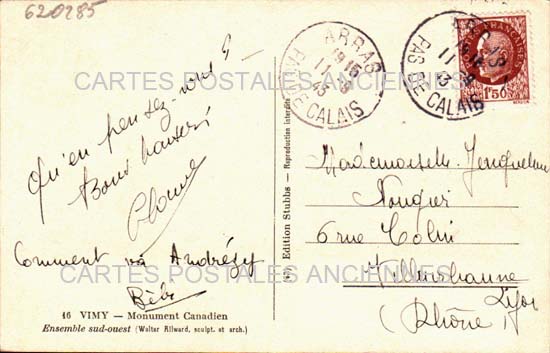 620285
Qu'en pensez-vous ?
Bons baisers
Comment va Andrésy
Bébé
16 VIMY — Monument Canadien
Ensemble sud-ouest (Walter Allward, sculpt. et arch.)
Edition Stubbs — Reproduction interdite
ARRAS
PAS DE CALAIS
ARRAS
PAS DE CALAIS
1F50
Mademoiselle Jacqueline
Nougier
6 rue Colin
Villeurbanne
Lyon
(Rhône)
CARTES POSTALES ANCIENNES
CARTES POSTALES ANCIENNES
CARTES POSTALES ANCIENNES